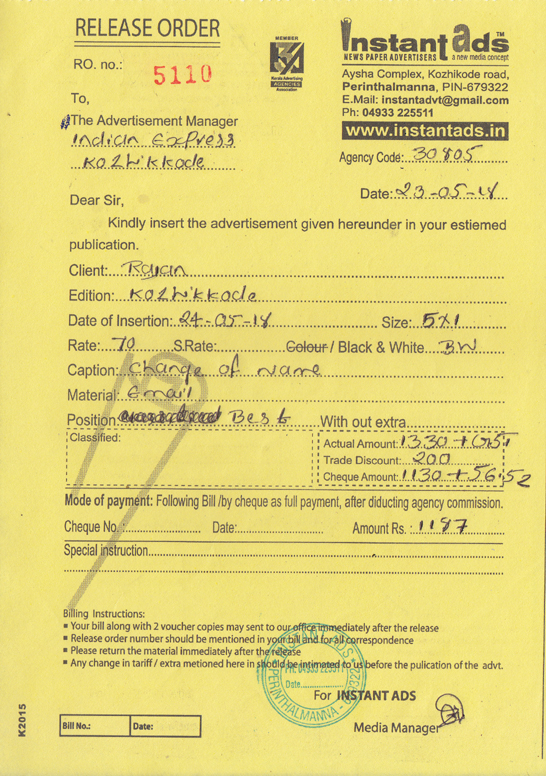 RELEASE ORDER
RO. no.: 5110
MEMBER
Kerala Advertising
AGENCIES
Association
Instant ads™
NEWS PAPER ADVERTISERS a new media concept
Aysha Complex, Kozhikode road,
Perinthalmanna, PIN-679322
E.Mail: instantadvt@gmail.com
Ph: 04933 225511
www.instantads.in
To,
The Advertisement Manager
Indian Express
Kozhikkode
Agency Code: 30805
Date: 23-05-18
Dear Sir,
Kindly insert the advertisement given hereunder in your estiemed
publication.
Client: Rajan
Edition: Kozhikkode
Date of Insertion: 24-05-18 Size: 5x1
Rate: 70 S.Rate: Colour / Black & White BW
Caption: Change of Name
Material: Email
Position Best With out extra
Classified:
Actual Amount: 1330 +
Trade Discount: 200
Cheque Amount: 1130 + 56.52
Mode of payment: Following Bill /by cheque as full payment, after diducting agency commission.
Cheque No.: Date: Amount Rs.: 1187
Special instruction
Billing Instructions:
Your bill along with 2 voucher copies may sent to our office immediately after the release
Release order number should be mentioned in your bill and for all correspondence
Please return the material immediately after the release
Any change in tariff / extra metioned here in should be intimated to us before the pulication of the advt.
INSTANT ADS
Ph: 04933 225511
Date
PERINTHALMANNA - 679322
For INSTANT ADS
Media Manager
K2015
Bill No.: Date: